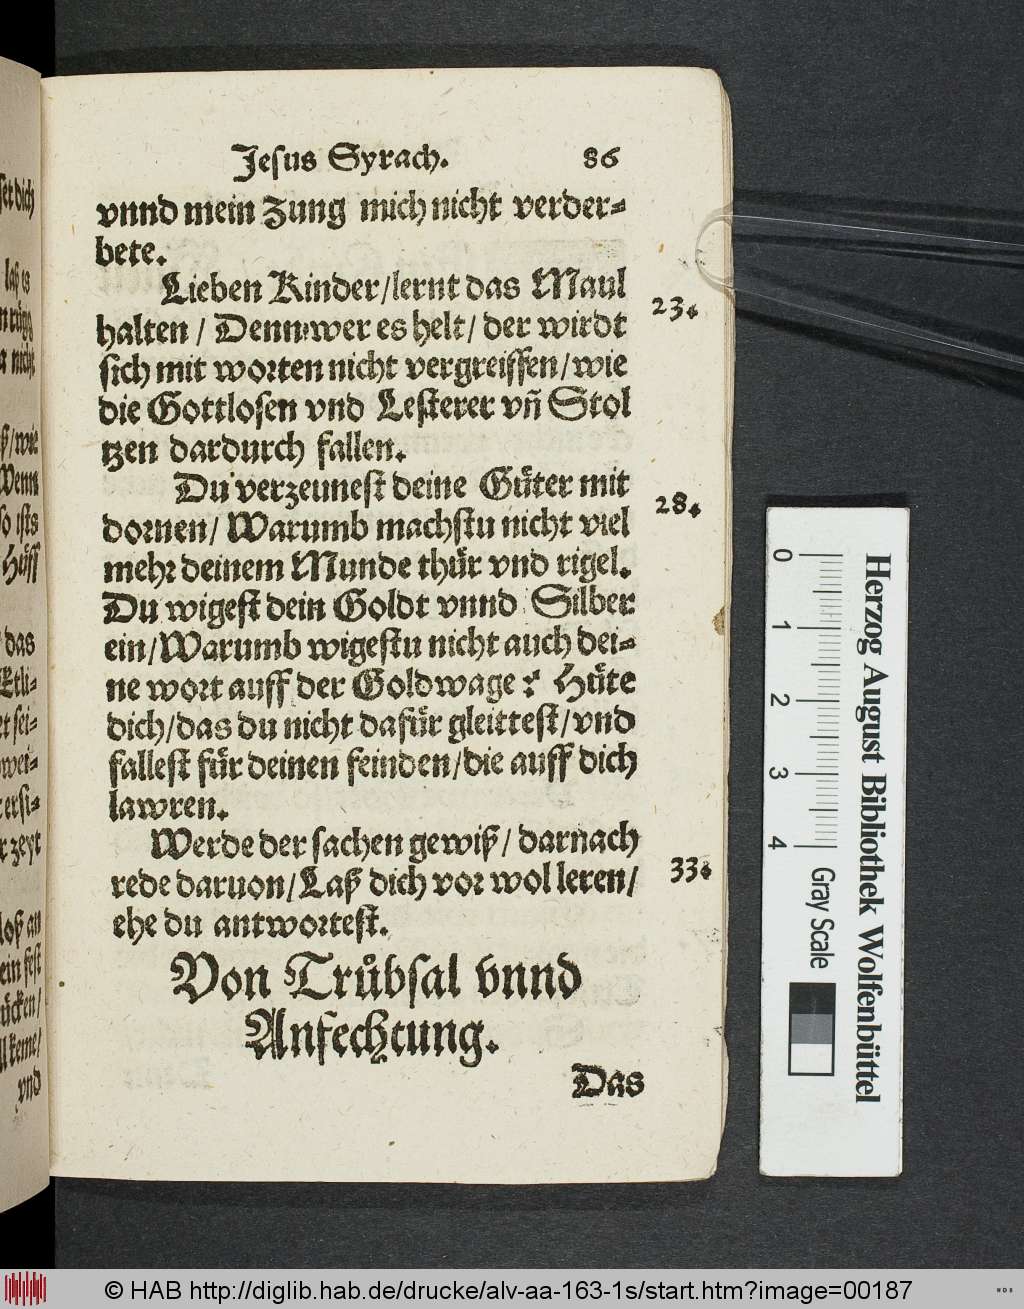 Jesus Syrach. 86
vnnd mein Zung mich nicht verder⸗
bete.
Lieben Kinder/lernt das Maul
23.
halten / Denn wer es helt/ der wirdt
sich mit worten nicht vergreiffen/wie
die Gottlosen vnd Lesterer vñ Stol
tzen dardurch fallen.
Du verzeunest deine Güter mit
28.
dornen/ Warumb machstu nicht viel
mehr deinem Munde thür vnd rigel.
Du wigest dein Goldt vnnd Silber
ein/Warumb wigestu nicht auch dei⸗
ne wort auff der Goldwage? Hüte
dich/das du nicht dafür gleittest/vnd
fallest für deinen feinden/die auff dich
lawren.
Werde der sachen gewiß/ darnach
33.
rede daruon/Laß dich vor wol leren/
ehe du antwortest.
Von Trůbsal vnnd
Anfechtung.
Das
set dich
laß es
nicht
ß/wie
Wenn
so ists
Hüff
das
Etli⸗
et sei⸗
wei⸗
ersi⸗
r zeyt
loß an
ein fest
ücken/
keme/
vnd
Herzog August Bibliothek Wolfenbüttel
0 1 2 3 4
Gray Scale
© HAB http://diglib.hab.de/drucke/alv-aa-163-1s/start.htm?image=00187